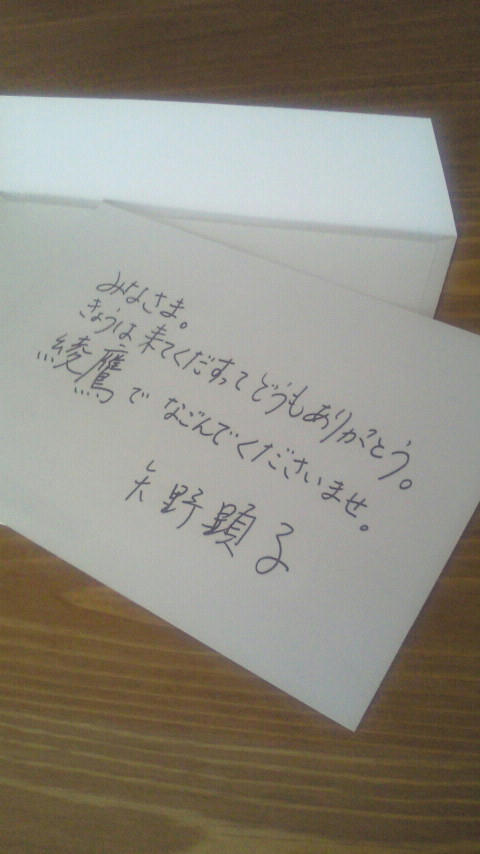 みなさま。
きょうは来てくだすってどうもありがとう。
綾鷹でなごんでくださいませ。
矢野顕子